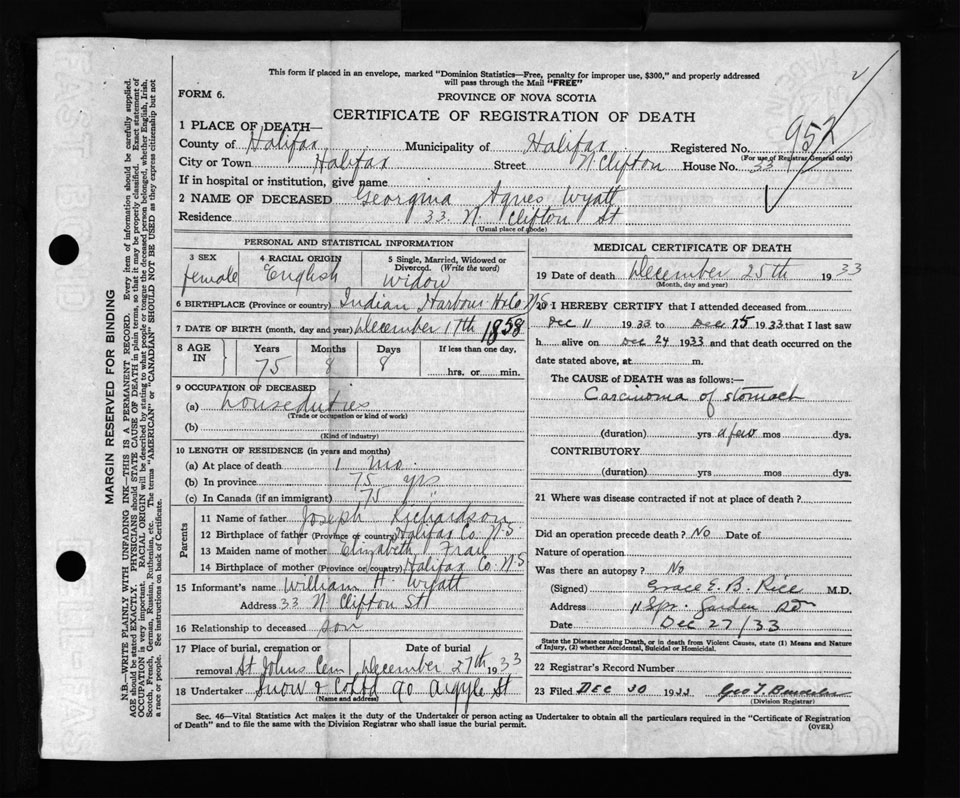 This form if placed in an envelope, marked "Dominion Statistics—Free, penalty for improper use, $300," and properly addressed
will pass through the Mail "FREE"
FORM 6.
PROVINCE OF NOVA SCOTIA
CERTIFICATE OF REGISTRATION OF DEATH
1 PLACE OF DEATH—
County of Halifax Municipality of Halifax Registered No. 952
(For use of Registrar General only)
City or Town Halifax Street N. Clifton House No. 33
If in hospital or institution, give name
2 NAME OF DECEASED Georgina Agnes Wyatt
Residence 33 N. Clifton St
(Usual place of abode)
PERSONAL AND STATISTICAL INFORMATION
3 SEX female
4 RACIAL ORIGIN English
5 Single, Married, Widowed or Divorced. (Write the word) Widow
6 BIRTHPLACE (Province or country) Indian Harbour Hfx Co N.S.
7 DATE OF BIRTH (month, day and year) December 17th 1858
8 AGE IN Years 75 Months 8 Days 8 If less than one day, hrs. or min.
9 OCCUPATION OF DECEASED
(a) houseduties
(Trade or occupation or kind of work)
(b)
(Kind of industry)
10 LENGTH OF RESIDENCE (in years and months)
(a) At place of death 1 mo.
(b) In province 75 yrs
(c) In Canada (if an immigrant) 75 "
Parents
11 Name of father Joseph Richardson
12 Birthplace of father (Province or country) Halifax Co. N.S
13 Maiden name of mother Elizabeth
14 Birthplace of mother (Province or country) Halifax Co. N.S
15 Informant's name William H. Wyatt
Address 33 N. Clifton St
16 Relationship to deceased son
17 Place of burial, cremation or removal St Johns Cem Date of burial December 27th 1933
18 Undertaker Snow & 90 Argyle St
(Name and address)
MEDICAL CERTIFICATE OF DEATH
19 Date of death December 25th 1933
(Month, day and year)
20 I HEREBY CERTIFY that I attended deceased from
Dec 11 1933 to Dec 25 1933 that I last saw
h alive on Dec 24 1933 and that death occurred on the
date stated above, at m.
The CAUSE of DEATH was as follows:—
Carcinoma of stomach
(duration) yrs a few mos dys.
CONTRIBUTORY
(duration) yrs mos dys.
21 Where was disease contracted if not at place of death?
Did an operation precede death? No Date of
Nature of operation
Was there an autopsy? No
(Signed) Grace E. B. Rice M.D.
Address Spr. Garden Rd
Date Dec 27/33
State the Disease causing Death, or in death from Violent Causes, state (1) Means and Nature
of Injury, (2) whether Accidental, Suicidal or Homicidal.
22 Registrar's Record Number
23 Filed DEC 30 1933 Geo T.
(Division Registrar)
Sec. 46—Vital Statistics Act makes it the duty of the Undertaker or person acting as Undertaker to obtain all the particulars required in the "Certificate of Registration
of Death" and to file the same with the Division Registrar who shall issue the burial permit.
(OVER)
MARGIN RESERVED FOR BINDING
N.B.—WRITE PLAINLY WITH UNFADING INK—THIS IS A PERMANENT RECORD. Every item of information should be carefully supplied.
AGE should be stated EXACTLY. PHYSICIANS should STATE CAUSE OF DEATH in plain terms, so that it may be properly classified. Exact statement of
OCCUPATION is very important. RACIAL ORIGIN will be described by stating to what people or tongue the deceased person belonged, whether English, Irish,
Scotch, French, German, Russian, Ruthenian, etc. The terms "AMERICAN" or "CANADIAN" SHOULD NOT BE USED as they express citizenship but not
a race or people. See instructions on back of Certificate.